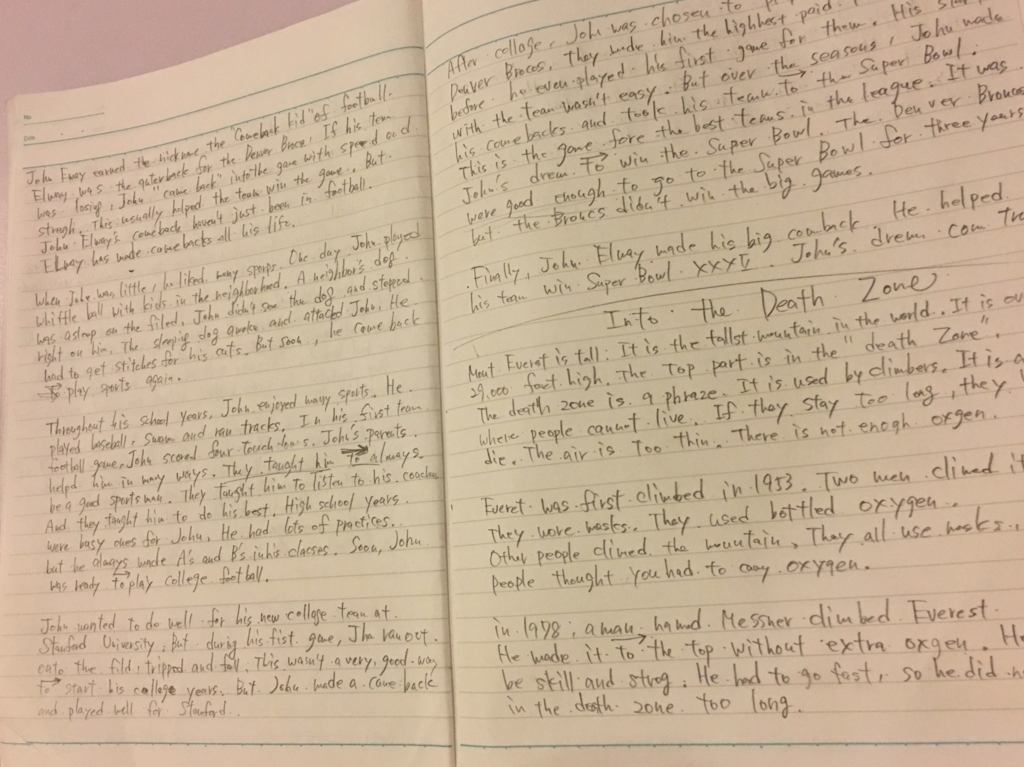 No
Date
John Eway earned the nickname the "Comeback kid" of football.
Elway was the quterback for the Denver Bronco. If his tem
was losing, John "came back" into the game with speed and
strength. This usually helped the team win the game. But
John Elway's comeback haven't just been in football.
Elway has made comebacks all his life.
When John was little, he liked many sports. One day, John played
whiffle ball with kids in the neighborhood. A neighbor's dog
was asleep on the filed. John didn't see the dog and stepped
right on him. The sleeping dog awoke and attacked John. He
had to get stitches for his cuts. But soon, he come back
to play sports again.
Throughout his school years, John enjoyed many sports. He
played baseball, swam and ran tracks. In his first team
football game, John scored four touch downs. John's parents
helpd him in many ways. They taught him to always
be a good sports man. They taught him to listen to his coaches
And they taught him to do his best. High school years
were busy ones for John. He had lots of practices.
but he always made A's and B's in his classes. Soon, John
was ready to play college football.
John wanted to do well for his new college team at
Stanford University, But during his fist game, Jhn ran out
onto the fild, tripped and fell. This wasn't a very good way
to start his college years. But John made a come back
and played well for Stanford.
After collage, John was chosen to
Denver Brocos. They made him the highhest paid
before he even played his first game for them. His
with the team wasn't easy. But over the seasons, John made
his comebacks and took his team to the Super Bowl.
This is the game fore the best teams in the league. It was
John's drem to win the Super Bowl. The Denver Broncos
were good enough to go to the Super Bowl for three years
but the Broncs didn't win the big games.
Finally, John Elway made his big comback He helped
his team win Super Bowl John's drem com
Into the Death Zone
Mout Everet is tall: It is the tallst mountain in the world. It is
29,000 feet high. The Top part is in the "death Zone".
The death zone is a phrase. It is used by climbers. It is a
where people cannot live. If they stay too long, they
die. The air is Too thin. There is not enogh oxgen.
Everet was first climbed in 1953. Two men climed it
They wore masks. They used bottled oxygen.
Other people climed the mountain. They all use masks.
people thought you had to carry oxygen.
in 1978, a man named Messner climbed Everest.
He made it to the top without extra oxgen. He
be skill and strog. He had to go fast, so he did
in the death zone too long.